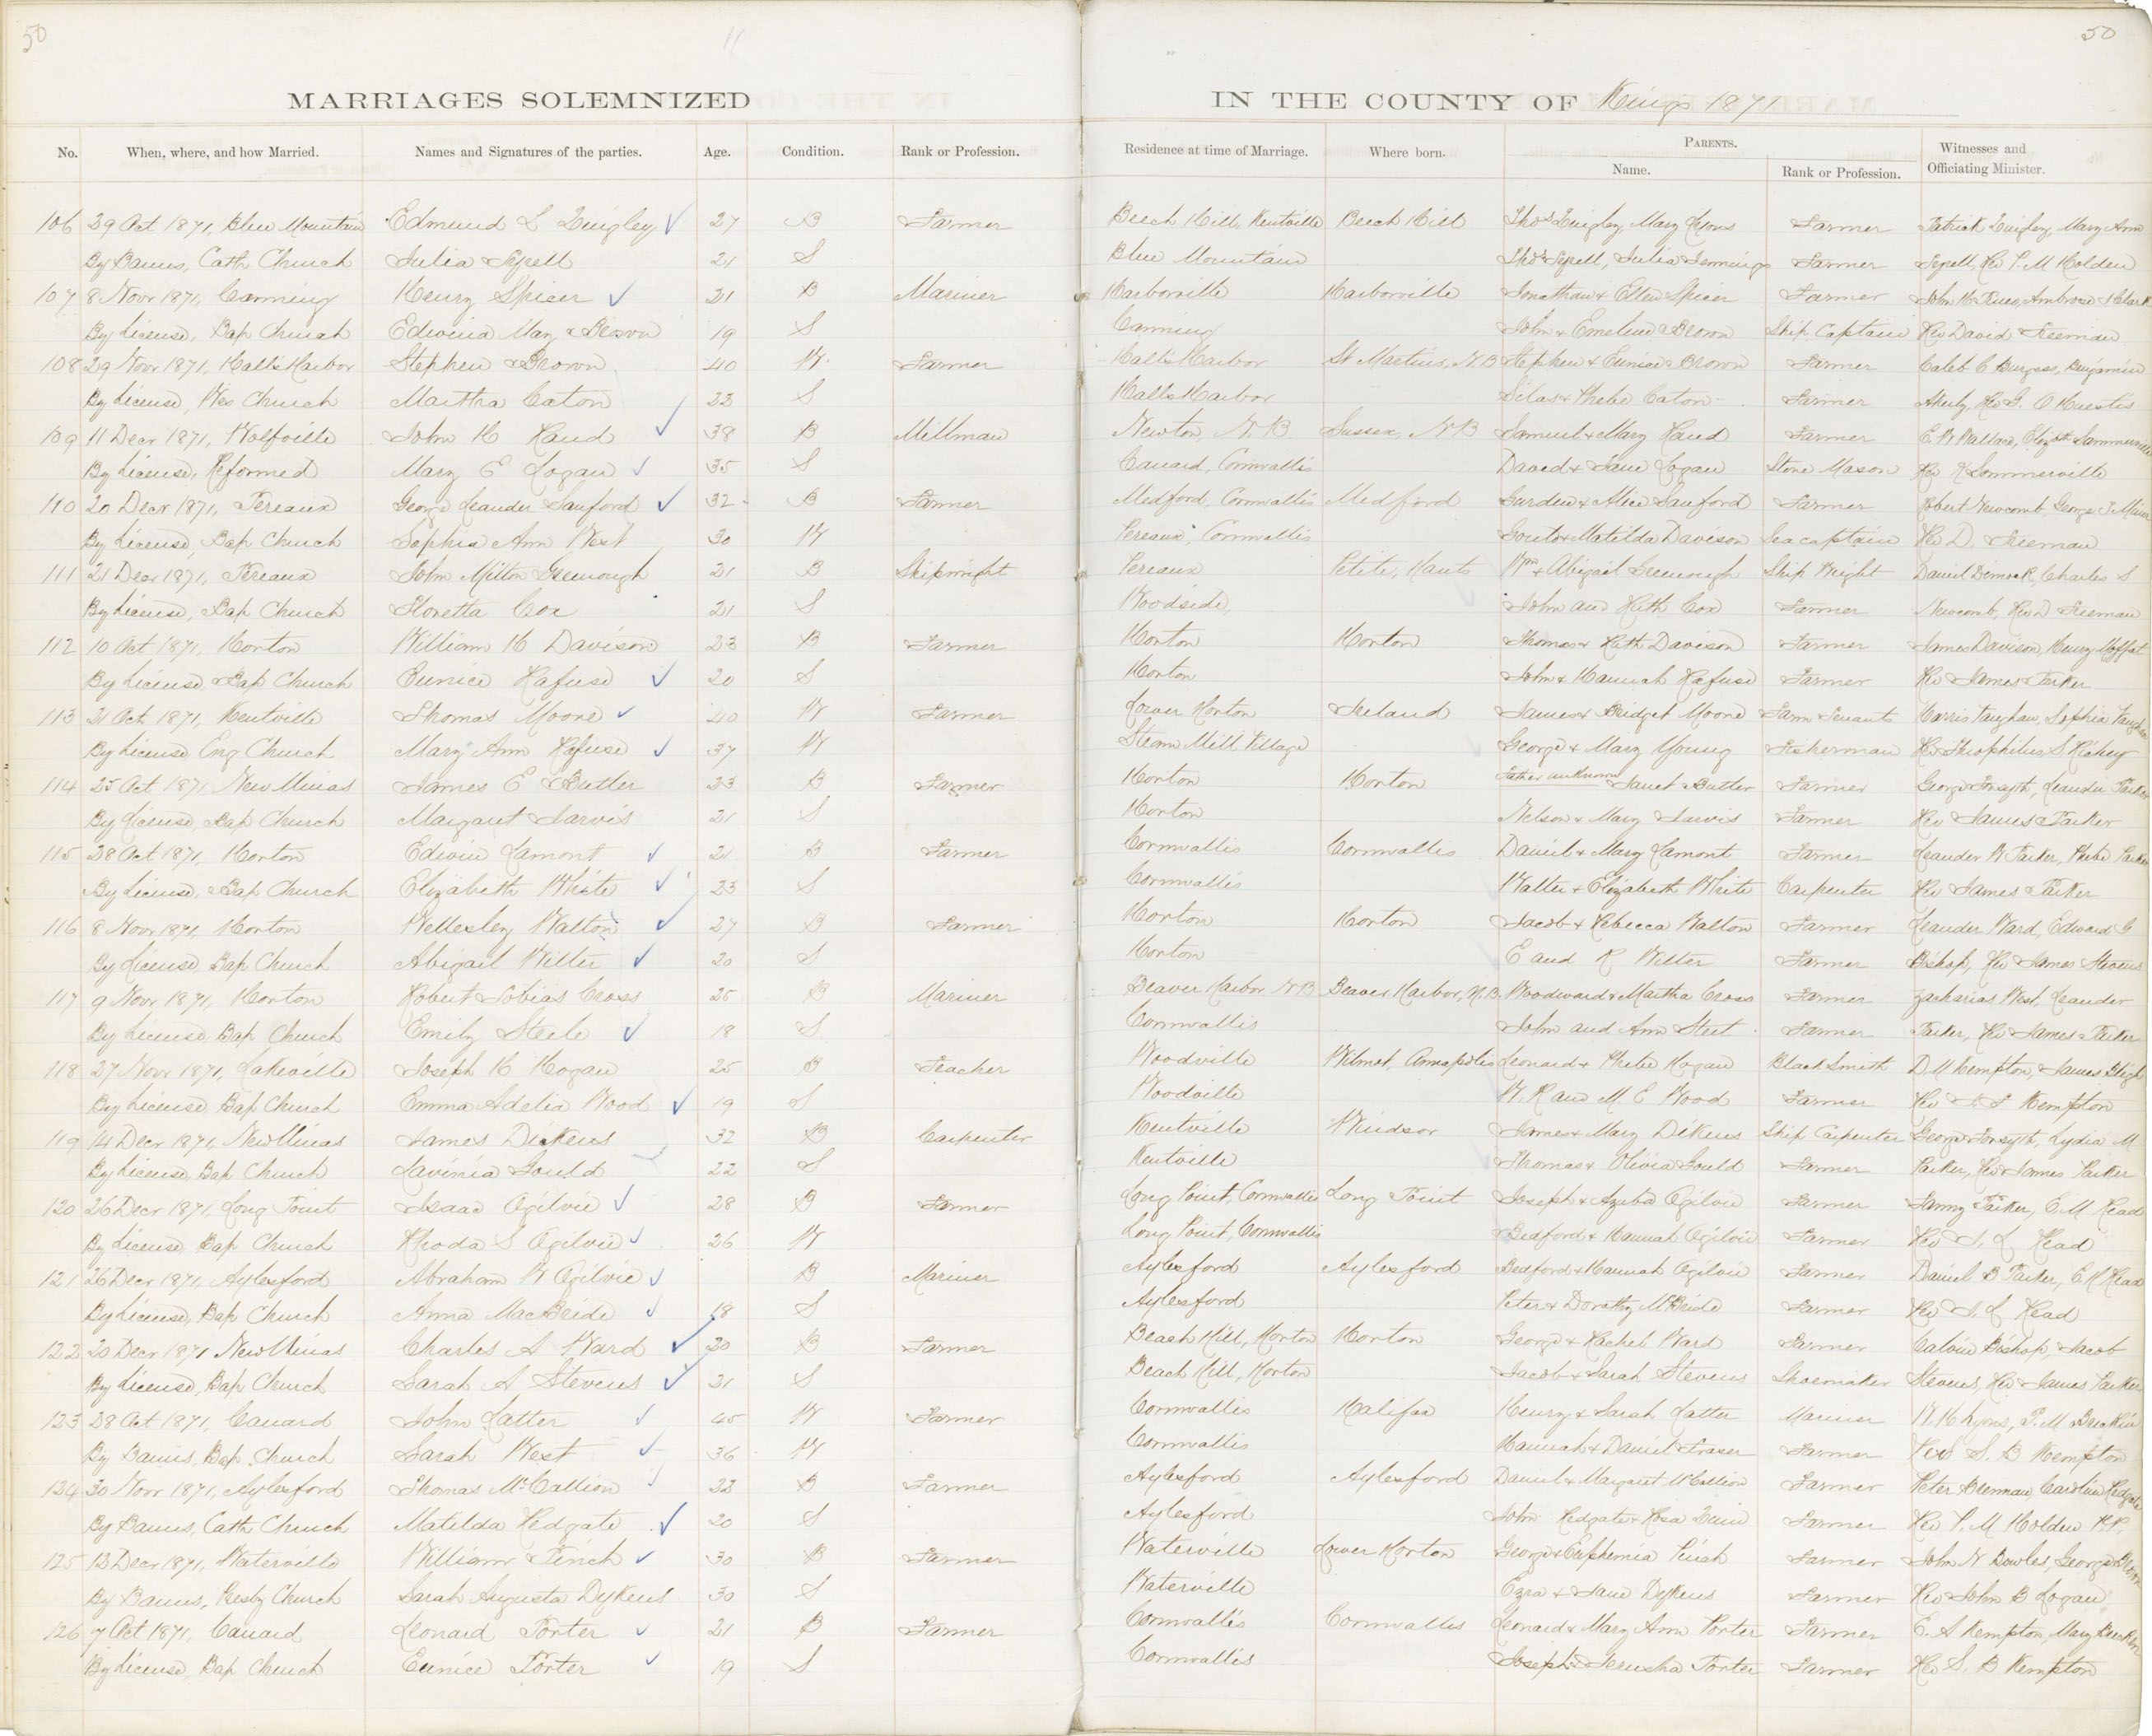 50
11
50
MARRIAGES SOLEMNIZED IN THE COUNTY OF Kings 1871
No. When, where, and how Married. Names and Signatures of the parties. Age. Condition. Rank or Profession. Residence at time of Marriage. Where born. PARENTS. Name. Rank or Profession. Witnesses and Officiating Minister.
106 29 Oct 1871, Blue Mountain Edmund L Quigley 27 B Farmer Beech Hill, Kentville Beech Hill Thos Quigley, Mary Lyons Farmer Patrick Quigley, Mary Ann
By Banns, Cath Church Julia 21 S Blue Mountain Julia Jennings Farmer Rev P. M Holden
107 8 Novr 1871, Canning Henry Spicer 21 B Mariner Harborville Harborville Jonathan & Ellen Spicer Farmer Ambrose Clark
By License, Bap Church Edwina May Brown 19 S Canning John & Emeline Brown Ship Captain Rev David Freeman
108 29 Novr 1871, Halls Harbor Stephen Brown 40 W. Farmer Halls Harbor St Martins, N.B Stephen & Eunice Brown Farmer Caleb C Burgess, Benjamin
By License, Wes Church Martha Eaton 23 S Halls Harbor Silas & Phebe Eaton Farmer Rev G. O Huestis
109 11 Decr 1871, Wolfville John H Hand 38 B Millman Newton, N.B. Sussex, N B Samuel & Mary Hand Farmer E. W Wallace, Elizbth Sommerville
By License, Reformed Mary E Logan 35 S Canard, Cornwallis David & Jane Logan Stone Mason Rev R Sommerville
110 20 Decr 1871, Pereaux George Leander Sanford 32 B Farmer Medford, Cornwallis Medford Gurden & Alice Sanford Farmer Robert Newcomb, George J. Miner
By License, Bap Church Sophia Ann West 30 W Pereaux, Cornwallis & Matilda Davison Sea captain Rev D. Freeman
111 21 Decr 1871, Pereaux John Milton Greenough 21 B Shipwright Pereaux Petite, Hants Wm & Abigail Greenough Ship Wright Daniel Dimock, Charles S
By License, Bap Church Floretta Cox 21 S Woodside John and Ruth Cox Farmer Newcomb, Rev D Freeman
112 10 Oct 1871, Horton William H Davison 23 B Farmer Horton Horton Thomas & Ruth Davison Farmer James Davison, Henry Moffat
By License, Bap Church Eunice Rafuse 20 S Horton John & Hannah Rafuse Farmer Rev James Parker
113 21 Oct 1871, Kentville Thomas Moone 40 W Farmer Lower Horton Ireland James & Bridget Moone Farm Servants Harris Vaughan, Sophia Vaughan
By License, Eng Church Mary Ann Rafuse 37 W Steam Mill Village George & Mary Young Fisherman Rev Theophilus S Richey
114 25 Oct 1871, New Minas James E Butler 23 B Farmer Horton Horton Father unknown Janet Butler Farmer George Forsyth, Leander Parker
By License, Bap Church Margaret Jarvis 21 S Horton Nelson & Mary Jarvis Farmer Rev James Parker
115 28 Oct 1871, Horton Edwin Lamont 21 B Farmer Cornwallis Cornwallis Daniel & Mary Lamont Farmer Leander W Parker, Phebe Parker
By License, Bap Church Elizabeth White 23 S Cornwallis Walter & Elizabeth White Carpenter Rev James Parker
116 8 Novr 1871, Horton Wellesley Walton 27 B Farmer Horton Horton Jacob & Rebecca Walton Farmer Leander Ward, Edward G
By License, Bap Church Abigail Wilter 20 S Horton E and R Wilter Farmer Bishop, Rev James Stevens
117 9 Novr 1871, Horton Robert Tobias Cross 25 B Mariner Beaver Harbor N B Beaver Harbor, N.B. Woodward & Martha Cross Farmer Zacharias West, Leander
By License, Bap Church Emily Steele 18 S Cornwallis John and Ann Steel Farmer Parker, Rev James Parker
118 27 Novr 1871, Lakeville Joseph H Hogan 25 B Teacher Woodville Wilmot, Annapolis Leonard & Phebe Hogan Black Smith D M Kempton, James Bligh
By License, Bap Church Emma Adelia Wood 19 S Woodville W. R and M E Wood Farmer Rev Kempton
119 14 Decr 1871, New Minas James Dickens 32 B Carpenter Kentville Windsor James & Mary Dikens Ship Carpenter George Forsyth, Lydia M
By License, Bap Church Lavinia Gould 22 S Kentville Thomas & Olivia Gould Farmer Parker, Rev James Parker
120 26 Decr 1871, Long Point Isaac Ogilvie 28 B Farmer Long Point, Cornwallis Long Point Joseph & Azuba Ogilvie Farmer Fanny Parker, E. M Read
By License, Bap Church Rhoda S Ogilvie 26 W Long Point, Cornwallis Bedford & Hannah Ogilvie Farmer Rev J. L Read
121 26 Decr 1871, Aylesford Abraham W Ogilvie B Mariner Aylesford Aylesford Bedford & Hannah Ogilvie Farmer Daniel B Parker, E. M Read
By License, Bap Church Anna MacBride 18 S Aylesford Peter & Dorothy McBride Farmer Rev J. L Read
122 20 Decr 1871 New Minas Charles A Ward 20 B Farmer Beach Hill, Horton Horton George & Rachel Ward Farmer Calvin Bishop, Jacob
By License, Bap Church Sarah A Stevens 21 S Beach Hill, Horton Jacob & Sarah Stevens Shoemaker Stevens, Rev James Parker
123 28 Oct 1871, Canard John Latter 45 W Farmer Cornwallis Halifax Henry & Sarah Latter Mariner W. H Lyons, P. M
By Banns, Bap. Church Sarah West 36 W Cornwallis Hannah & Daniel Fraser Farmer Rev S. B Kempton
124 30 Novr 1871, Aylesford Thomas McCallion 22 B Farmer Aylesford Aylesford Daniel & Margaret McCallion Farmer Peter Brennan, Caroline Redgate
By Banns, Cath Church Matilda Redgate 20 S Aylesford John Redgate & Rosa Farmer Rev P. M Holden P.P.
125 13 Decr 1871, Waterville William Pinch 30 B Farmer Waterville Lower Horton George & Euphemia Pinch Farmer John N Bowles, George Brown
By Banns, Presby Church Sarah Augusta Dykens 30 S Waterville Ezra & Jane Dykens Farmer Rev John B Logan
126 7 Oct 1871, Canard Leonard Porter 21 B Farmer Cornwallis Cornwallis Leonard & Mary Ann Porter Farmer E. A Kempton, Mary
By License, Bap Church Eunice Porter 19 S Cornwallis Joseph & Jerusha Porter Farmer Rev S. B Kempton